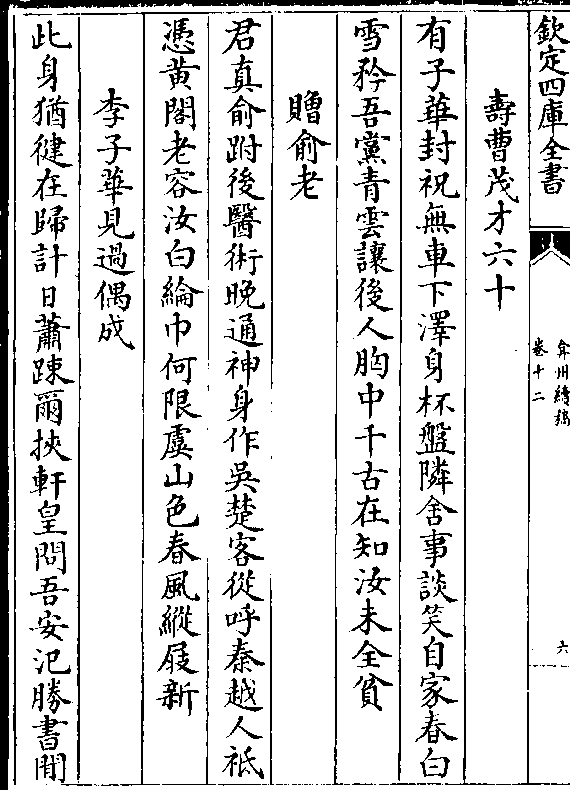 欽定四庫全書
弇州續稿
卷十二
六
壽曹茂才六十
有子華封祝無車下澤身杯盤隣舍事談笑自家春白
雪矜吾黨青雲讓後人胸中千古在知汝未全貧
贈俞老
君真俞跗後醫術晚通神身作吳楚客從呼秦越人祗
憑黃閣老容汝白綸巾何限虞山色春風縱屐新
李子華見過偶成
此身猶健在歸計日蕭踈爾挾軒皇問吾安汜勝書閒